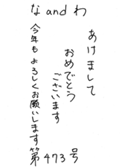 な and わ
あけまして
おめでとう
ございます
今年もよろしくお願いします
第473号